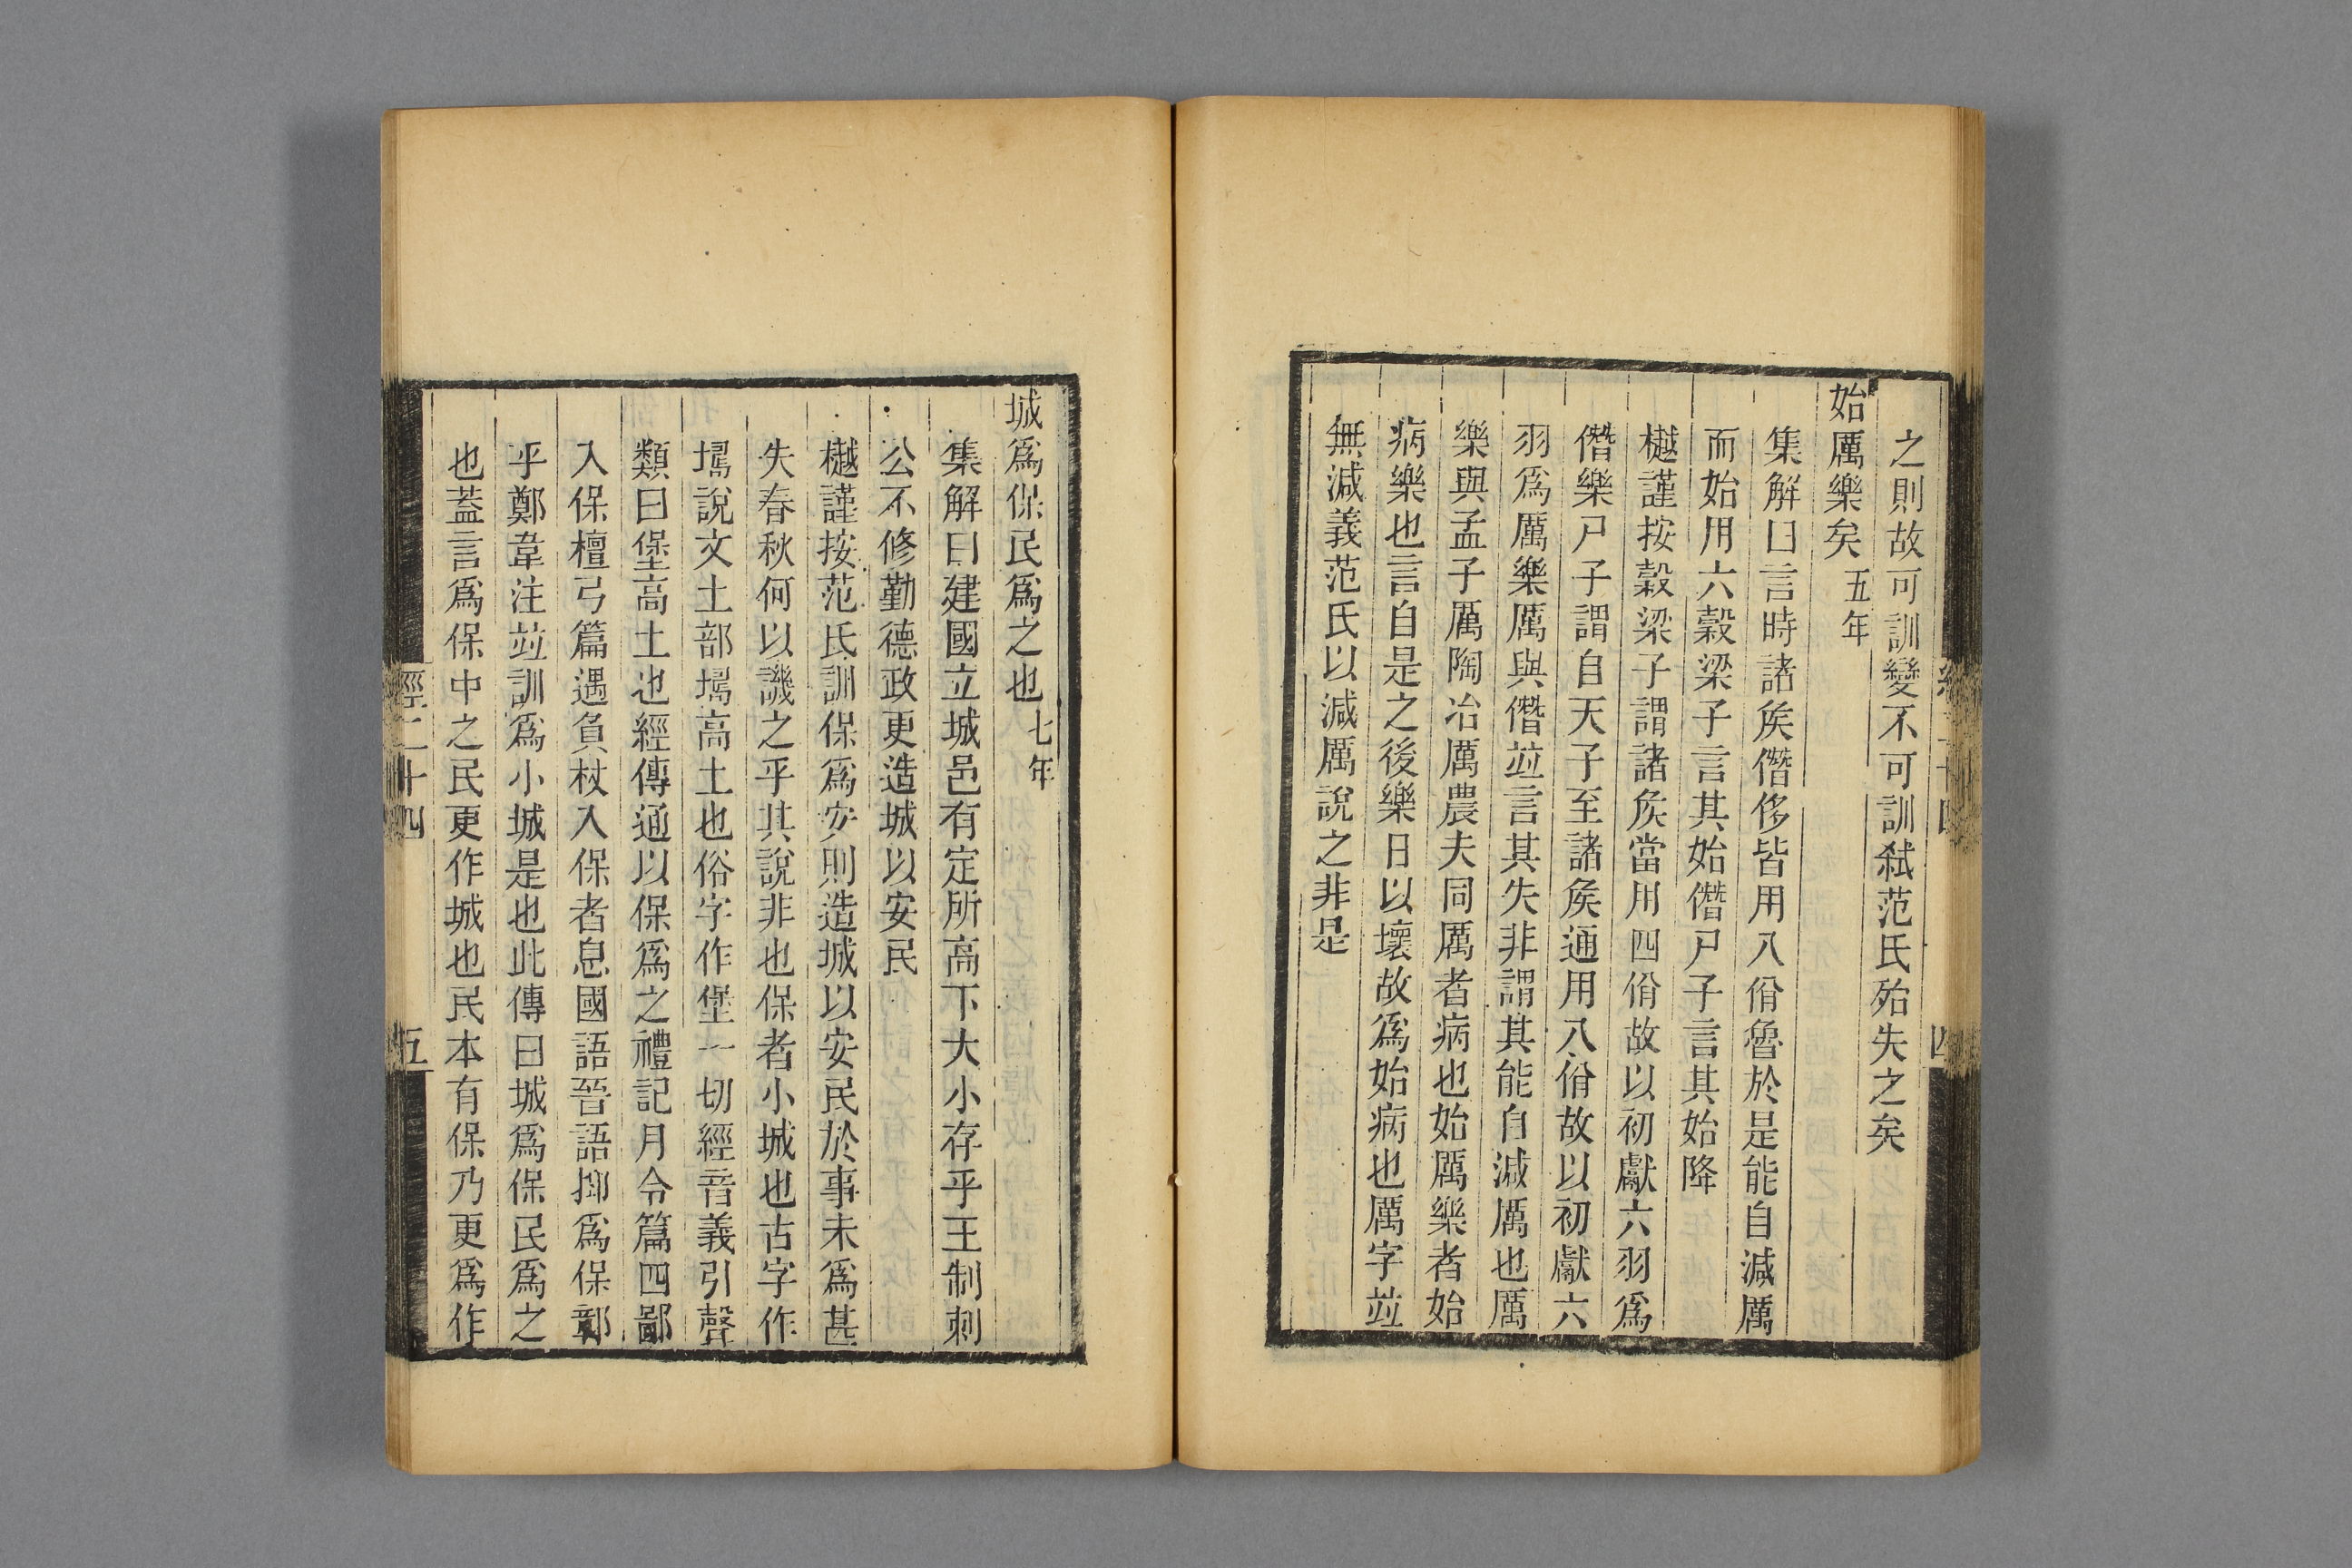 之則故可訓變不可訓弑范氏殆失之矣
始厲樂矣五年
集解曰言時諸矦僭侈皆用八佾魯於是能自減厲
而始用六穀梁子言其始僭尸子言其始降
樾謹按穀梁子謂諸矦當用四佾故以初獻六羽爲
僭樂尸子謂自天子至諸矦通用八佾故以初獻六
羽爲厲樂厲與僭竝言其失非謂其能自減厲也厲
樂與孟子厲陶冶厲農夫同厲者病也始厲樂者始
病樂也言自是之後樂日以壞故爲始病也厲字竝
無減義范氏以減厲說之非是
四
城爲保民爲之也七年
集解曰建國立城邑有定所高下大小存乎王制刺
公不修勤德政更造城以安民
樾謹按范氏訓保爲安則造城以安民於事未爲甚
失春秋何以譏之乎其說非也保者小城也古字作
堨說文土部堨高土也俗字作堡一切經音義引聲
類曰堡高土也經傳通以保爲之禮記月令篇四鄙
入保檀弓篇遇負杖入保者息國語晉語抑爲保鄣
乎鄭韋注竝訓爲小城是也此傳曰城爲保民爲之
也葢言爲保中之民更作城也民本有保乃更爲作
經二十四
五